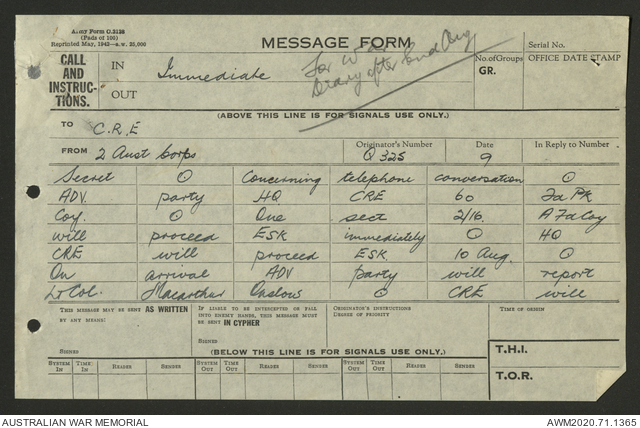 Army Form C.2128
(Pads of 100)
Reprinted May, 1942—a.w. 25,000
MESSAGE FORM
Serial No.
CALL AND INSTRUCTIONS.
IN Immediate
OUT
For War
Diary after 2nd Aug
No. of Groups
GR.
OFFICE DATE STAMP
(ABOVE THIS LINE IS FOR SIGNALS USE ONLY.)
TO C.R.E
FROM 2 Aust Corps
Originator's Number
Q 325
Date
9
In Reply to Number
Secret O Concerning telephone conversation O
ADV. party HQ CRE 60 Fd PK
Coy. O One sect 2/16. A Fd Coy
will proceed ESK immediately O HQ
CRE will proceed ESK 10 Aug. O
On arrival ADV party will report
Lt Col. Macarthur Onslow O CRE will
THIS MESSAGE MAY BE SENT AS WRITTEN
BY ANY MEANS:
SIGNED
IF LIABLE TO BE INTERCEPTED OR FALL
INTO ENEMY HANDS, THIS MESSAGE MUST
BE SENT IN CYPHER
SIGNED
ORIGINATOR'S INSTRUCTIONS
DEGREE OF PRIORITY
TIME OF ORIGIN
(BELOW THIS LINE IS FOR SIGNALS USE ONLY.)
T.H.I.
SYSTEM IN TIME IN READER SENDER SYSTEM OUT TIME OUT READER SENDER SYSTEM OUT TIME OUT READER SENDER
T.O.R.
AUSTRALIAN WAR MEMORIAL
AWM2020.71.1365